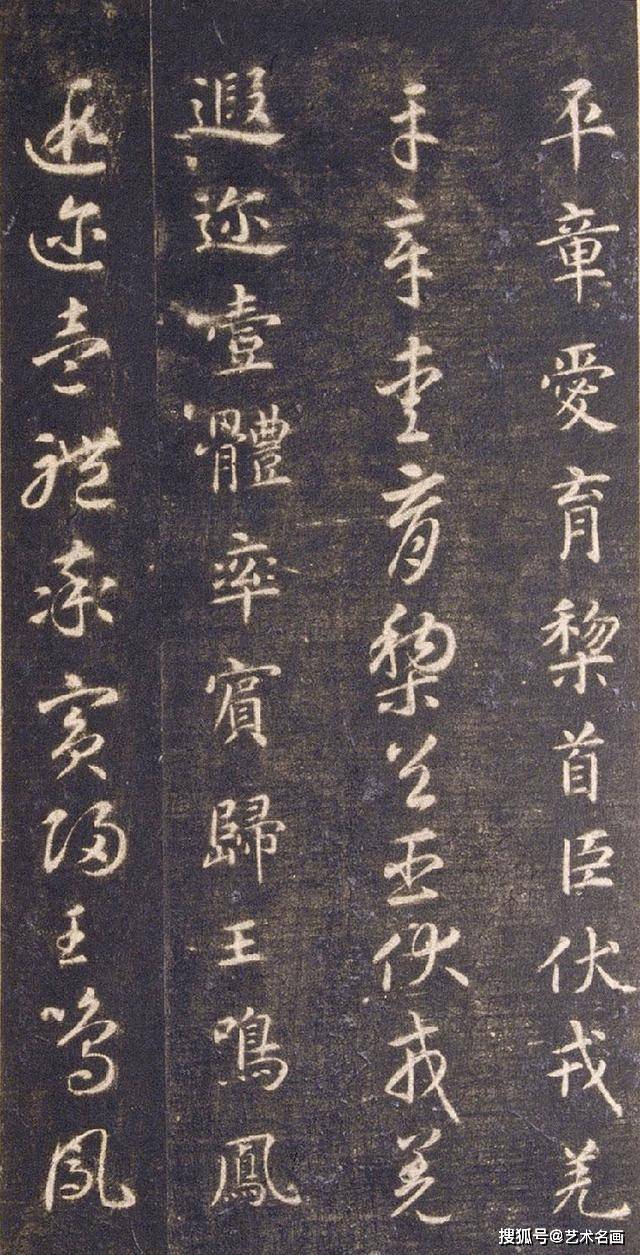 平章愛育黎首臣伏戎羌
平章愛育黎首臣伏戎羌
遐迩壹體率賓歸王鳴鳳
遐迩壹體率賓歸王鳴鳳
搜狐号@艺术名画